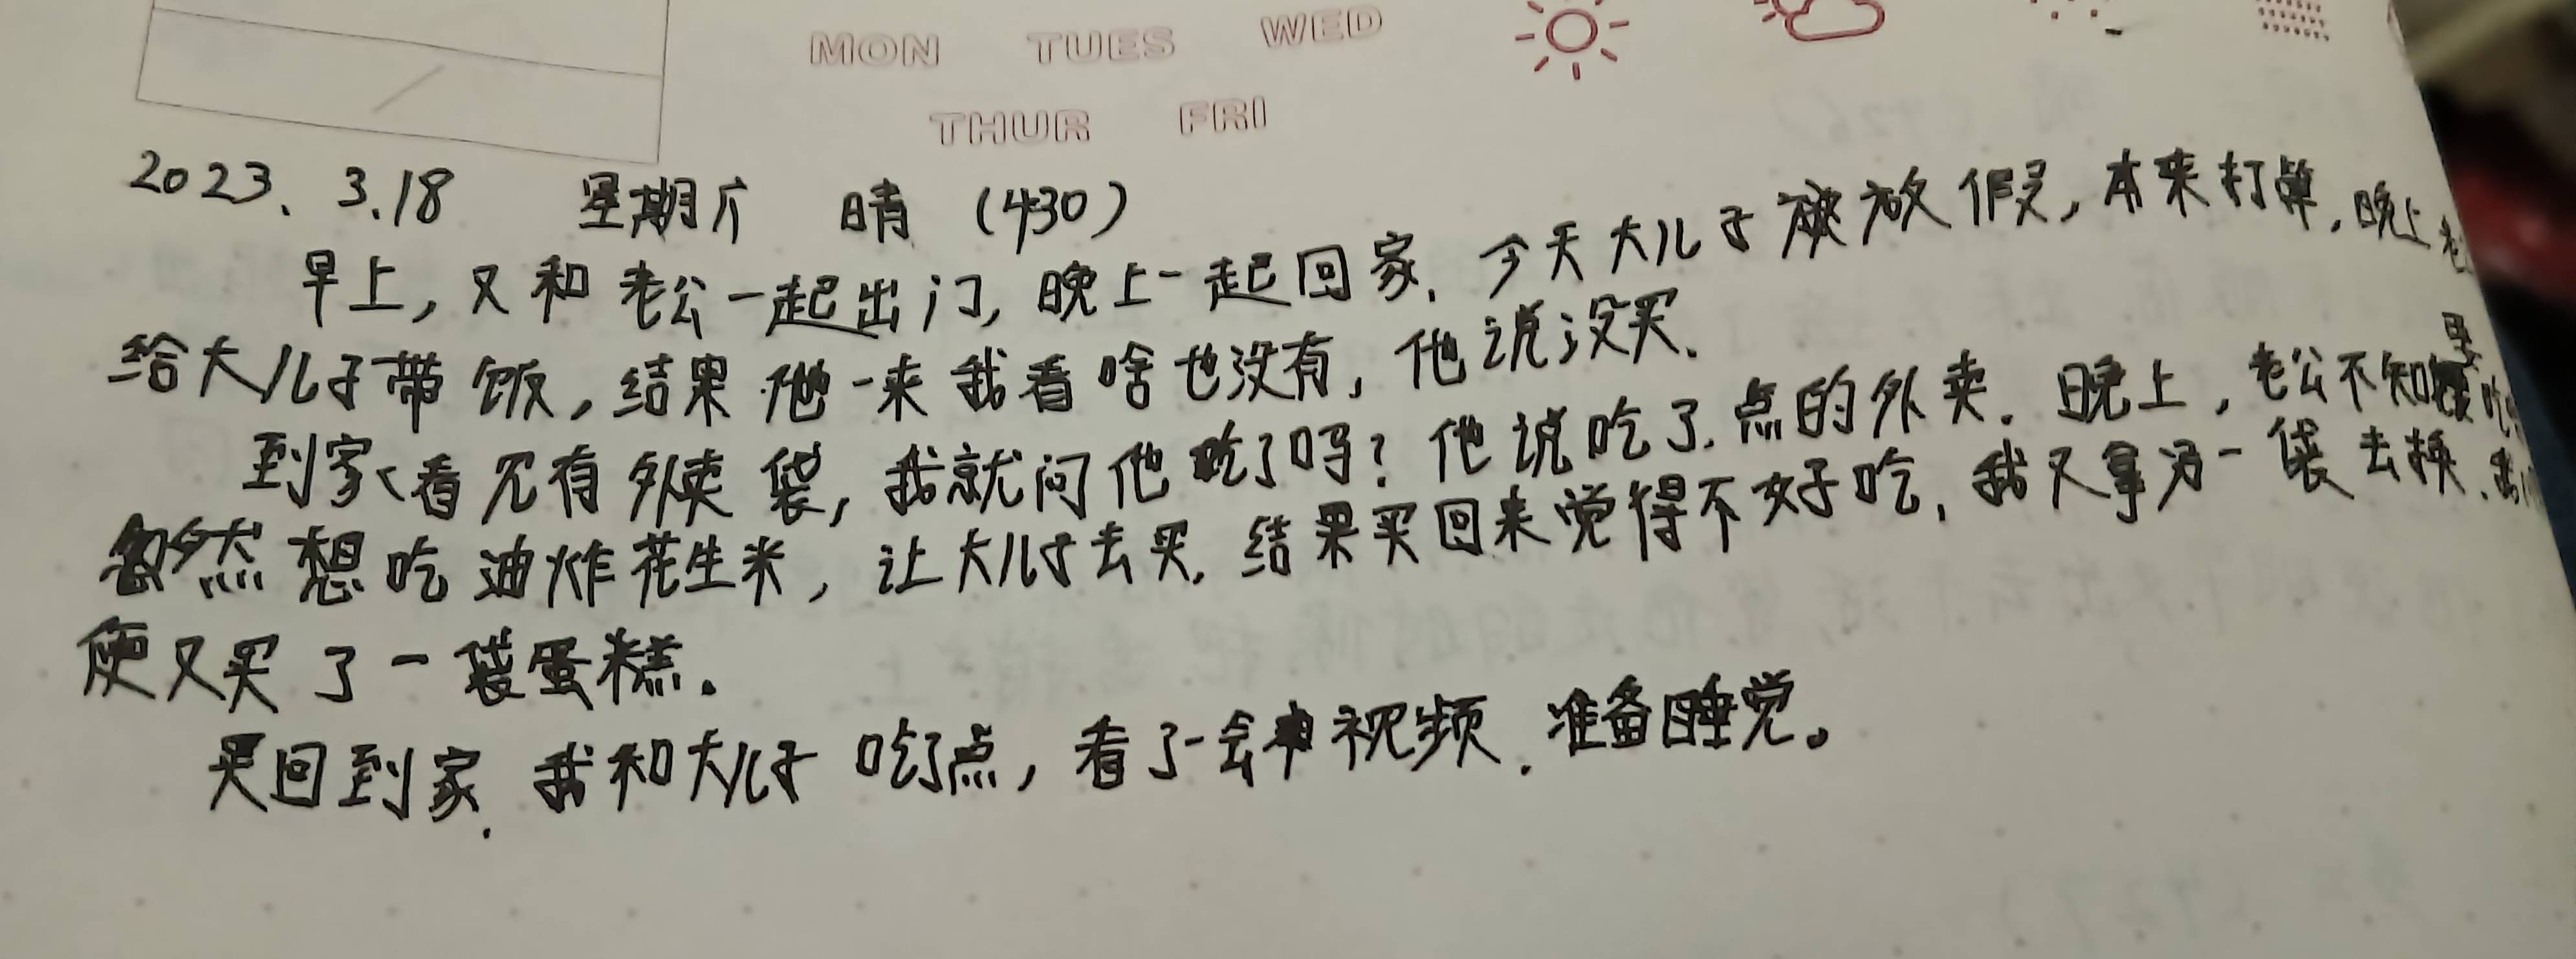 MON TUES WED
THUR FRI
2023. 3.18 星期六 晴 (430)
早上,又和老公一起出门,晚上一起回家.今天大儿子被放假,本来打算,晚上老
给大儿子带饭,结果他一来我看啥也没有,他说没买.
到家、看见有外卖袋,我就问他吃了吗?他说吃了.点的外卖.晚上,老公不知
忽然想吃油炸花生米,让大儿子去买,结果买回来觉得不好吃,我又拿另一袋去换.
便又买了一袋蛋糕.
买回到家.我和大儿子吃了点,看了一会 视频.准备睡觉。